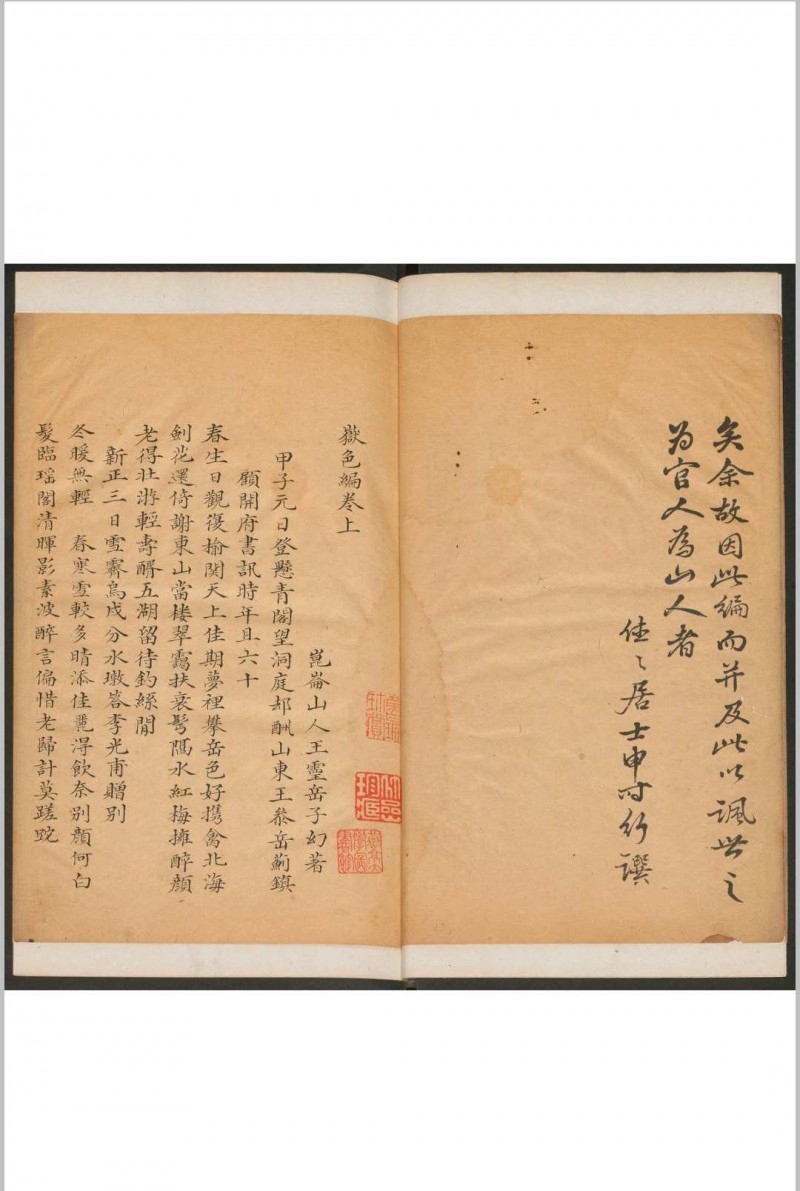 矣余故因此编而并及此以諷世之
为官人為山人者
佳〻居士申时行譔
嶽色編卷上
崑崙山人王靈岳子幻著
甲子元日登懸青閣望洞庭却酬山東王叅岳薊鎮
顧開府書訊時年且六十
春生日觀復揄関天上佳期夢裡攀岳色好携禽北海
劍花還倚謝東山當楼翠靄扶衰髩隔水紅梅擁醉顔
老得壯游輕壽酹五湖留待釣絲閒
新正三日雪霽烏戍分水墩答李光甫贈別
冬暖無輕 春寒雪較多晴添佳麗淂飲奈別顔何白
髮臨瑶閣清暉影素波醉言偏惜老歸計莫蹉跎